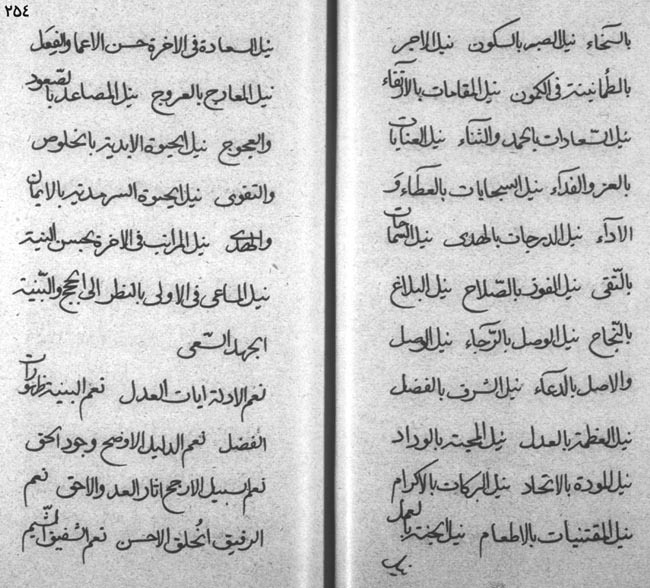 ٢٥٤
بالسخاء نيل الصبر بالسكون نيل الاجر
بالطمانينة فى الكمون نيل المقامات بالارتقاء
نيل السعادات بالحمد والثناء نيل العنايات
بالعز والفداء نيل السجايات بالعطاء و
الاداء نيل الدرجات بالهدى نيل السماحات
بالتقى نيل الفوز بالصلاح نيل البلاغ
بالنجاح نيل الوصل بالرجاء نيل الوصل
والاصل بالدعاء نيل الشرف بالفضل
نيل العظمة بالعدل نيل المحبة بالوداد
نيل المودة بالاتحاد نيل البركات بالاكرام
نيل المقتنيات بالاطعام نيل الجنة بالعمل
نيل السعادة فى الاخرة حسن الاعما والفعل
نيل المعارج بالعروج نيل المصاعد بالصعود
والعجوج نيل الحيوة الابدية بالخلوص
والتقوى نيل الحيوة السرمدية بالايمان
والهدى نيل المراتب فى الاخرة بحسن النية
نيل المساعى فى الاولى بالنظر الى الحجج والبنية
الجهد السعى
نعم الادلة ايات العدل نعم البنية ظهورات
الفضل نعم الدليل الاوضح وجود الحق
نعم السبيل الارجح اثار العدو الاحق نعم
الرفيق الخلق الاحسن نعم الشفيق الشيم